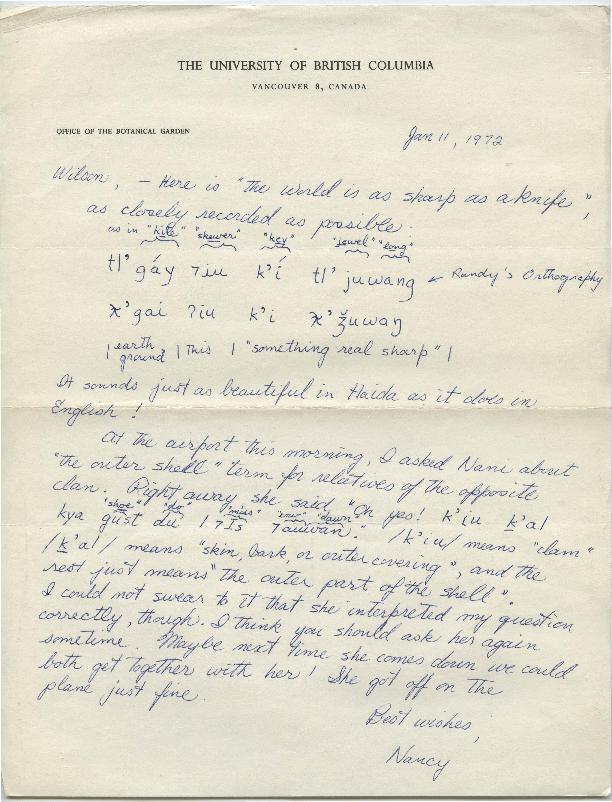 THE UNIVERSITY OF BRITISH COLUMBIA
VANCOUVER 8, CANADA
OFFICE OF THE BOTANICAL GARDEN
Jan 11, 1972
Wilson, — Here is "the world is as sharp as a knife",
as closely recorded as possible.
as in "kite" "skewer" "key" "jewel" "long"
tl' gáy ʔiu k'í tl' juwang ← Randy's Orthography
ƛ'gai ʔiu k'i ƛ' ǯuwaŋ
| earth ground | this | "something real sharp" |
It sounds just as beautiful in Haida as it does in
English!
At the airport this morning, I asked Nani about
"the outer shell" term for relatives of the opposite
clan. Right away she said "Oh yes! k'iu ḵ'al
"shoe" "do" "miss" "dawn"
kya gust du | ʔIs ʔauwan." /k'iu/ means "clam"
/ḵ'al/ means "skin, bark, or outer covering", and the
rest just means "the outer part of the shell".
I could not swear to it that she interpreted my question
correctly, though. I think you should ask her again
sometime. Maybe next time she comes down we could
both get together with her! She got off on the
plane just fine.
Best wishes,
Nancy